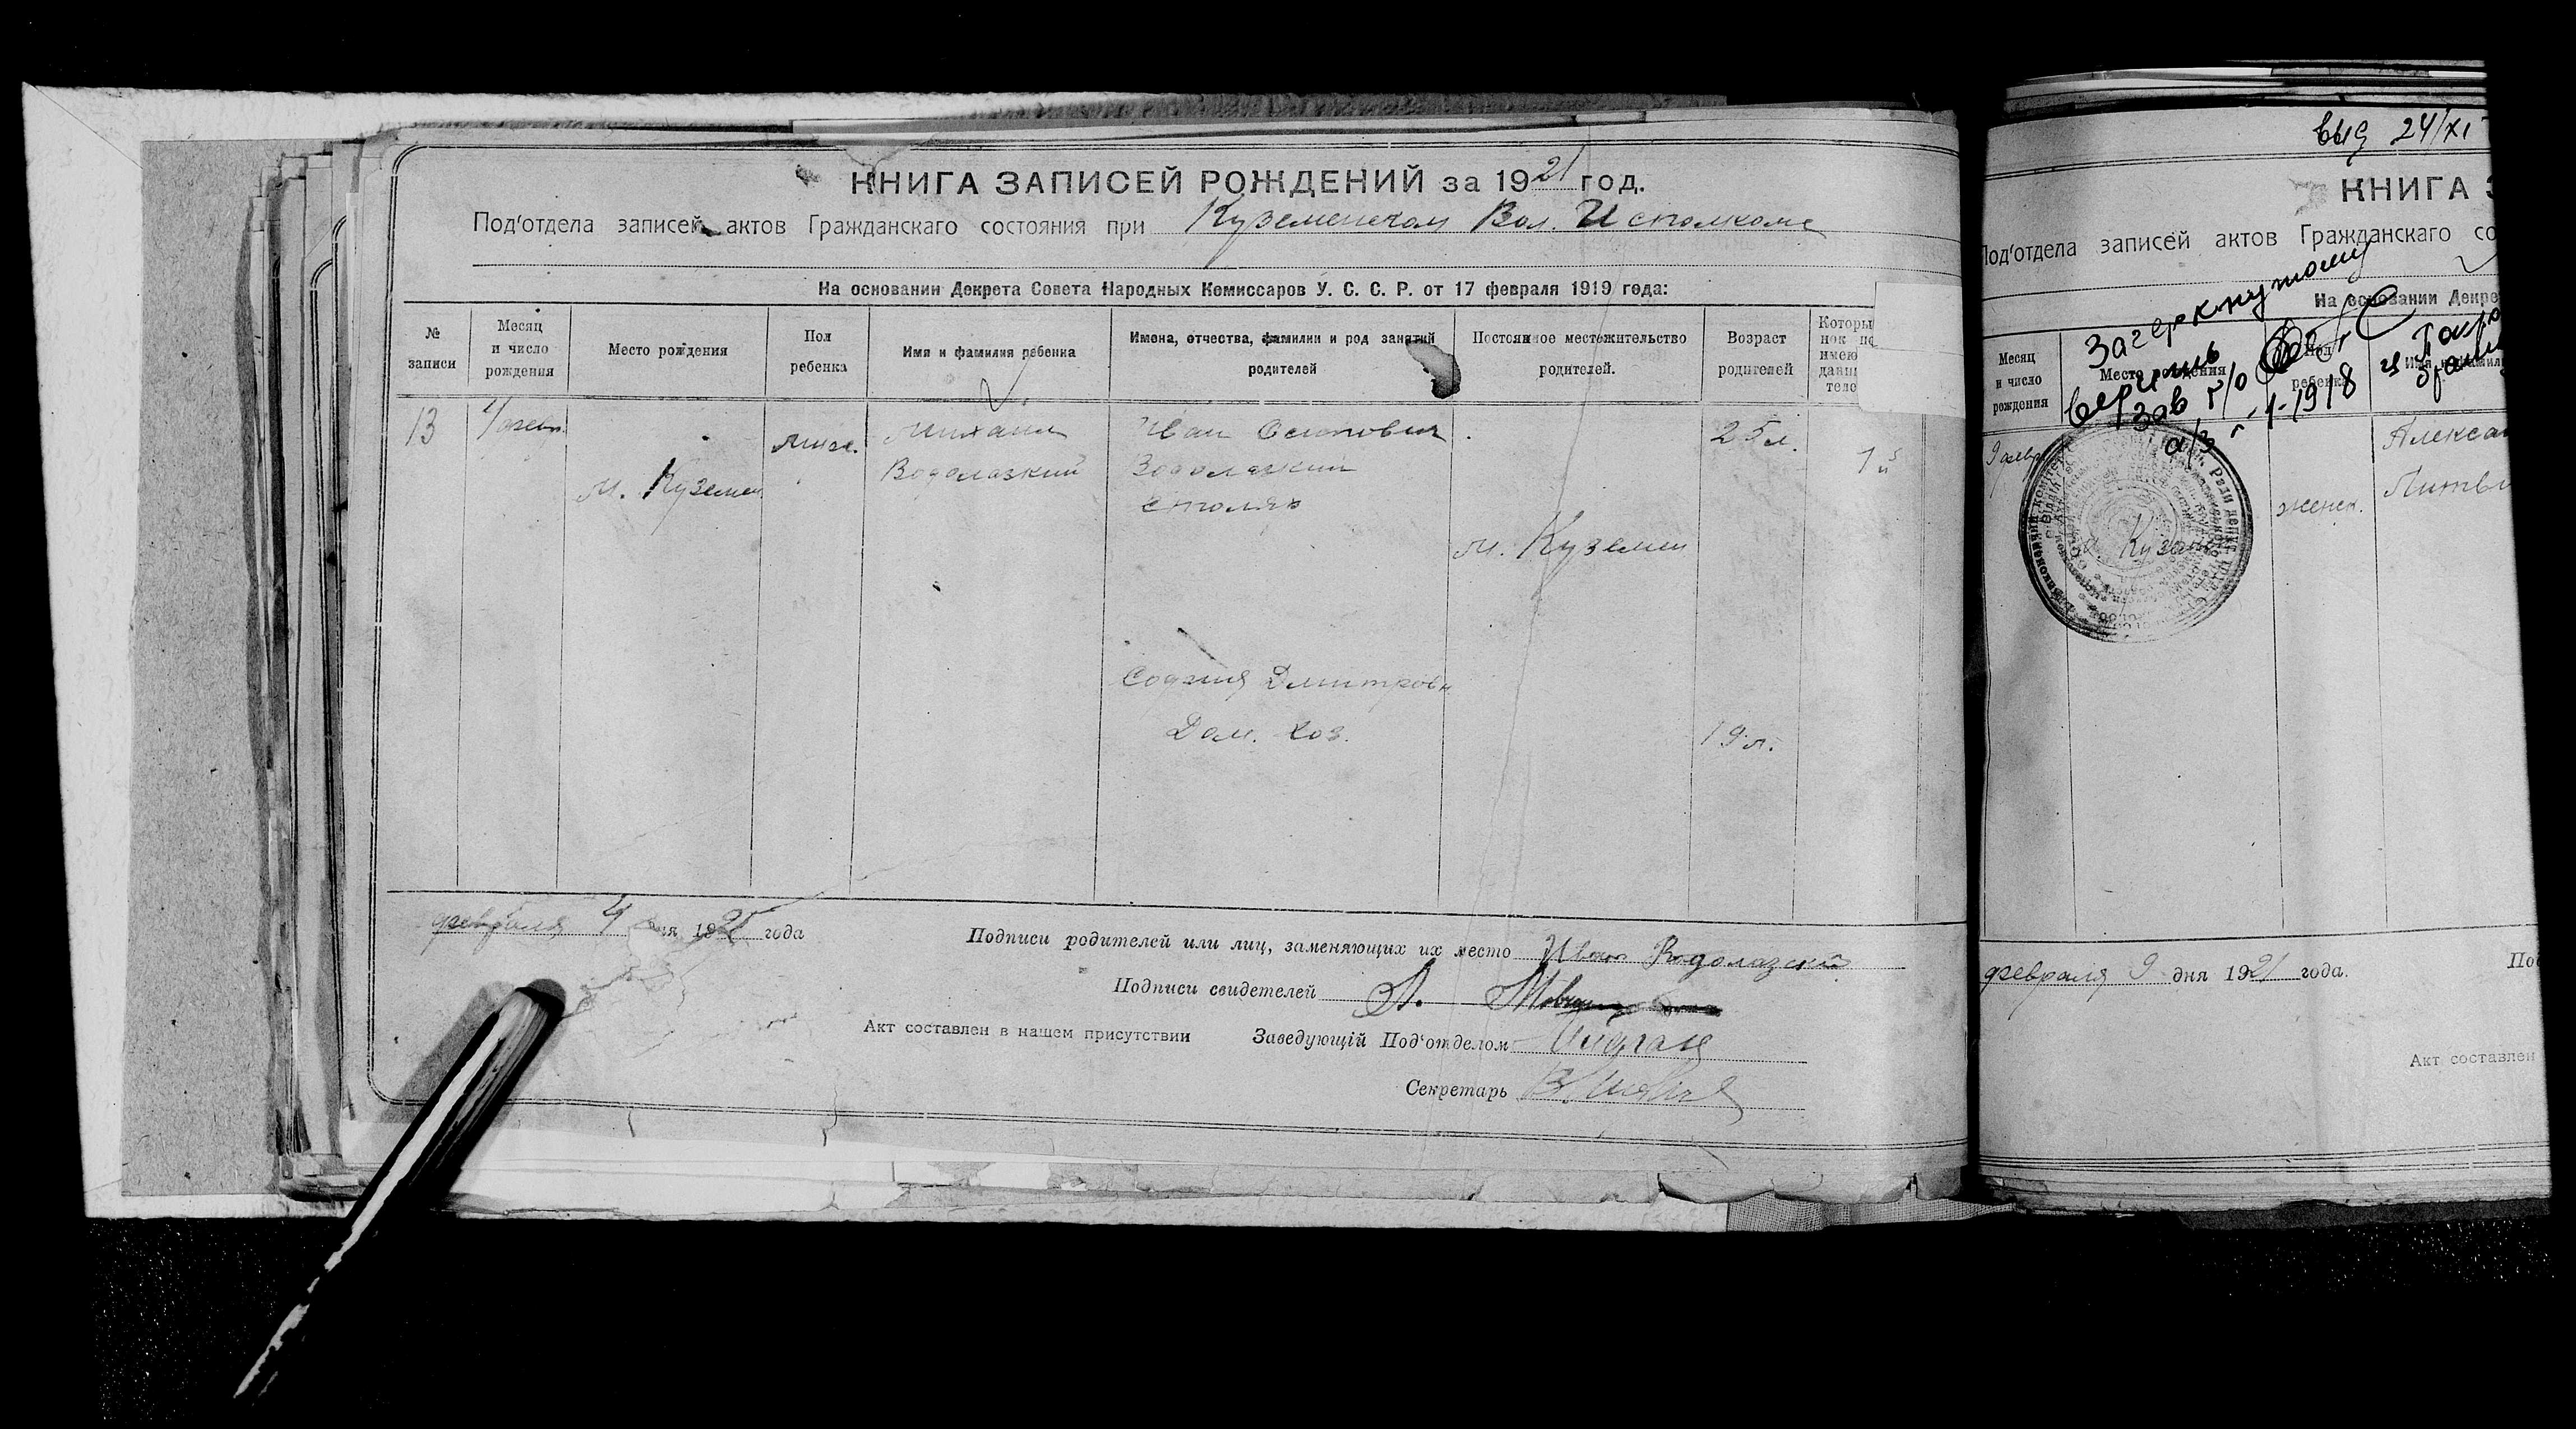 КНИГА ЗАПИСЕЙ РОЖДЕНИЙ за 1921 год.
Под'отдела записей актов Гражданскаго состояния при Куземенском Вол. Исполкоме
На основании Декрета Совета Народных Комиссаров У. С. С. Р. от 17 февраля 1919 года:
№ записи
Месяц и число рождения
Место рождения
Пол ребенка
Имя и фамилия ребенка
Имена, отчества, фамилии и род занятий родителей
Постоянное местожительство родителей.
Возраст родителей
Которы
нок по
имею
данн
теле
13
м. Куземен
муж.
Михаил
Водолазкий
Иван Осипович
Водолазкий
столяр
м. Куземен
25 л.
1й
София Дмитровн
Дом. хоз.
19 л.
февраля 4 дня 1921 года
Подписи родителей или лиц, заменяющих их место Иван Водолазский
Подписи свидетелей А.
Акт составлен в нашем присутствии
Заведующій Под'отделом
Секретарь
выд 24/XI
КНИГА З
Под'отдела записей актов Гражданскаго со
На основании Декре
Закреслену
вірить
Зав
1918
Месяц и число рождения
Место рождения
Пол ребенка
9 февр
женск.
Алексан
Литви
февраля 9 дня 1921 года.
Под
Акт составлен